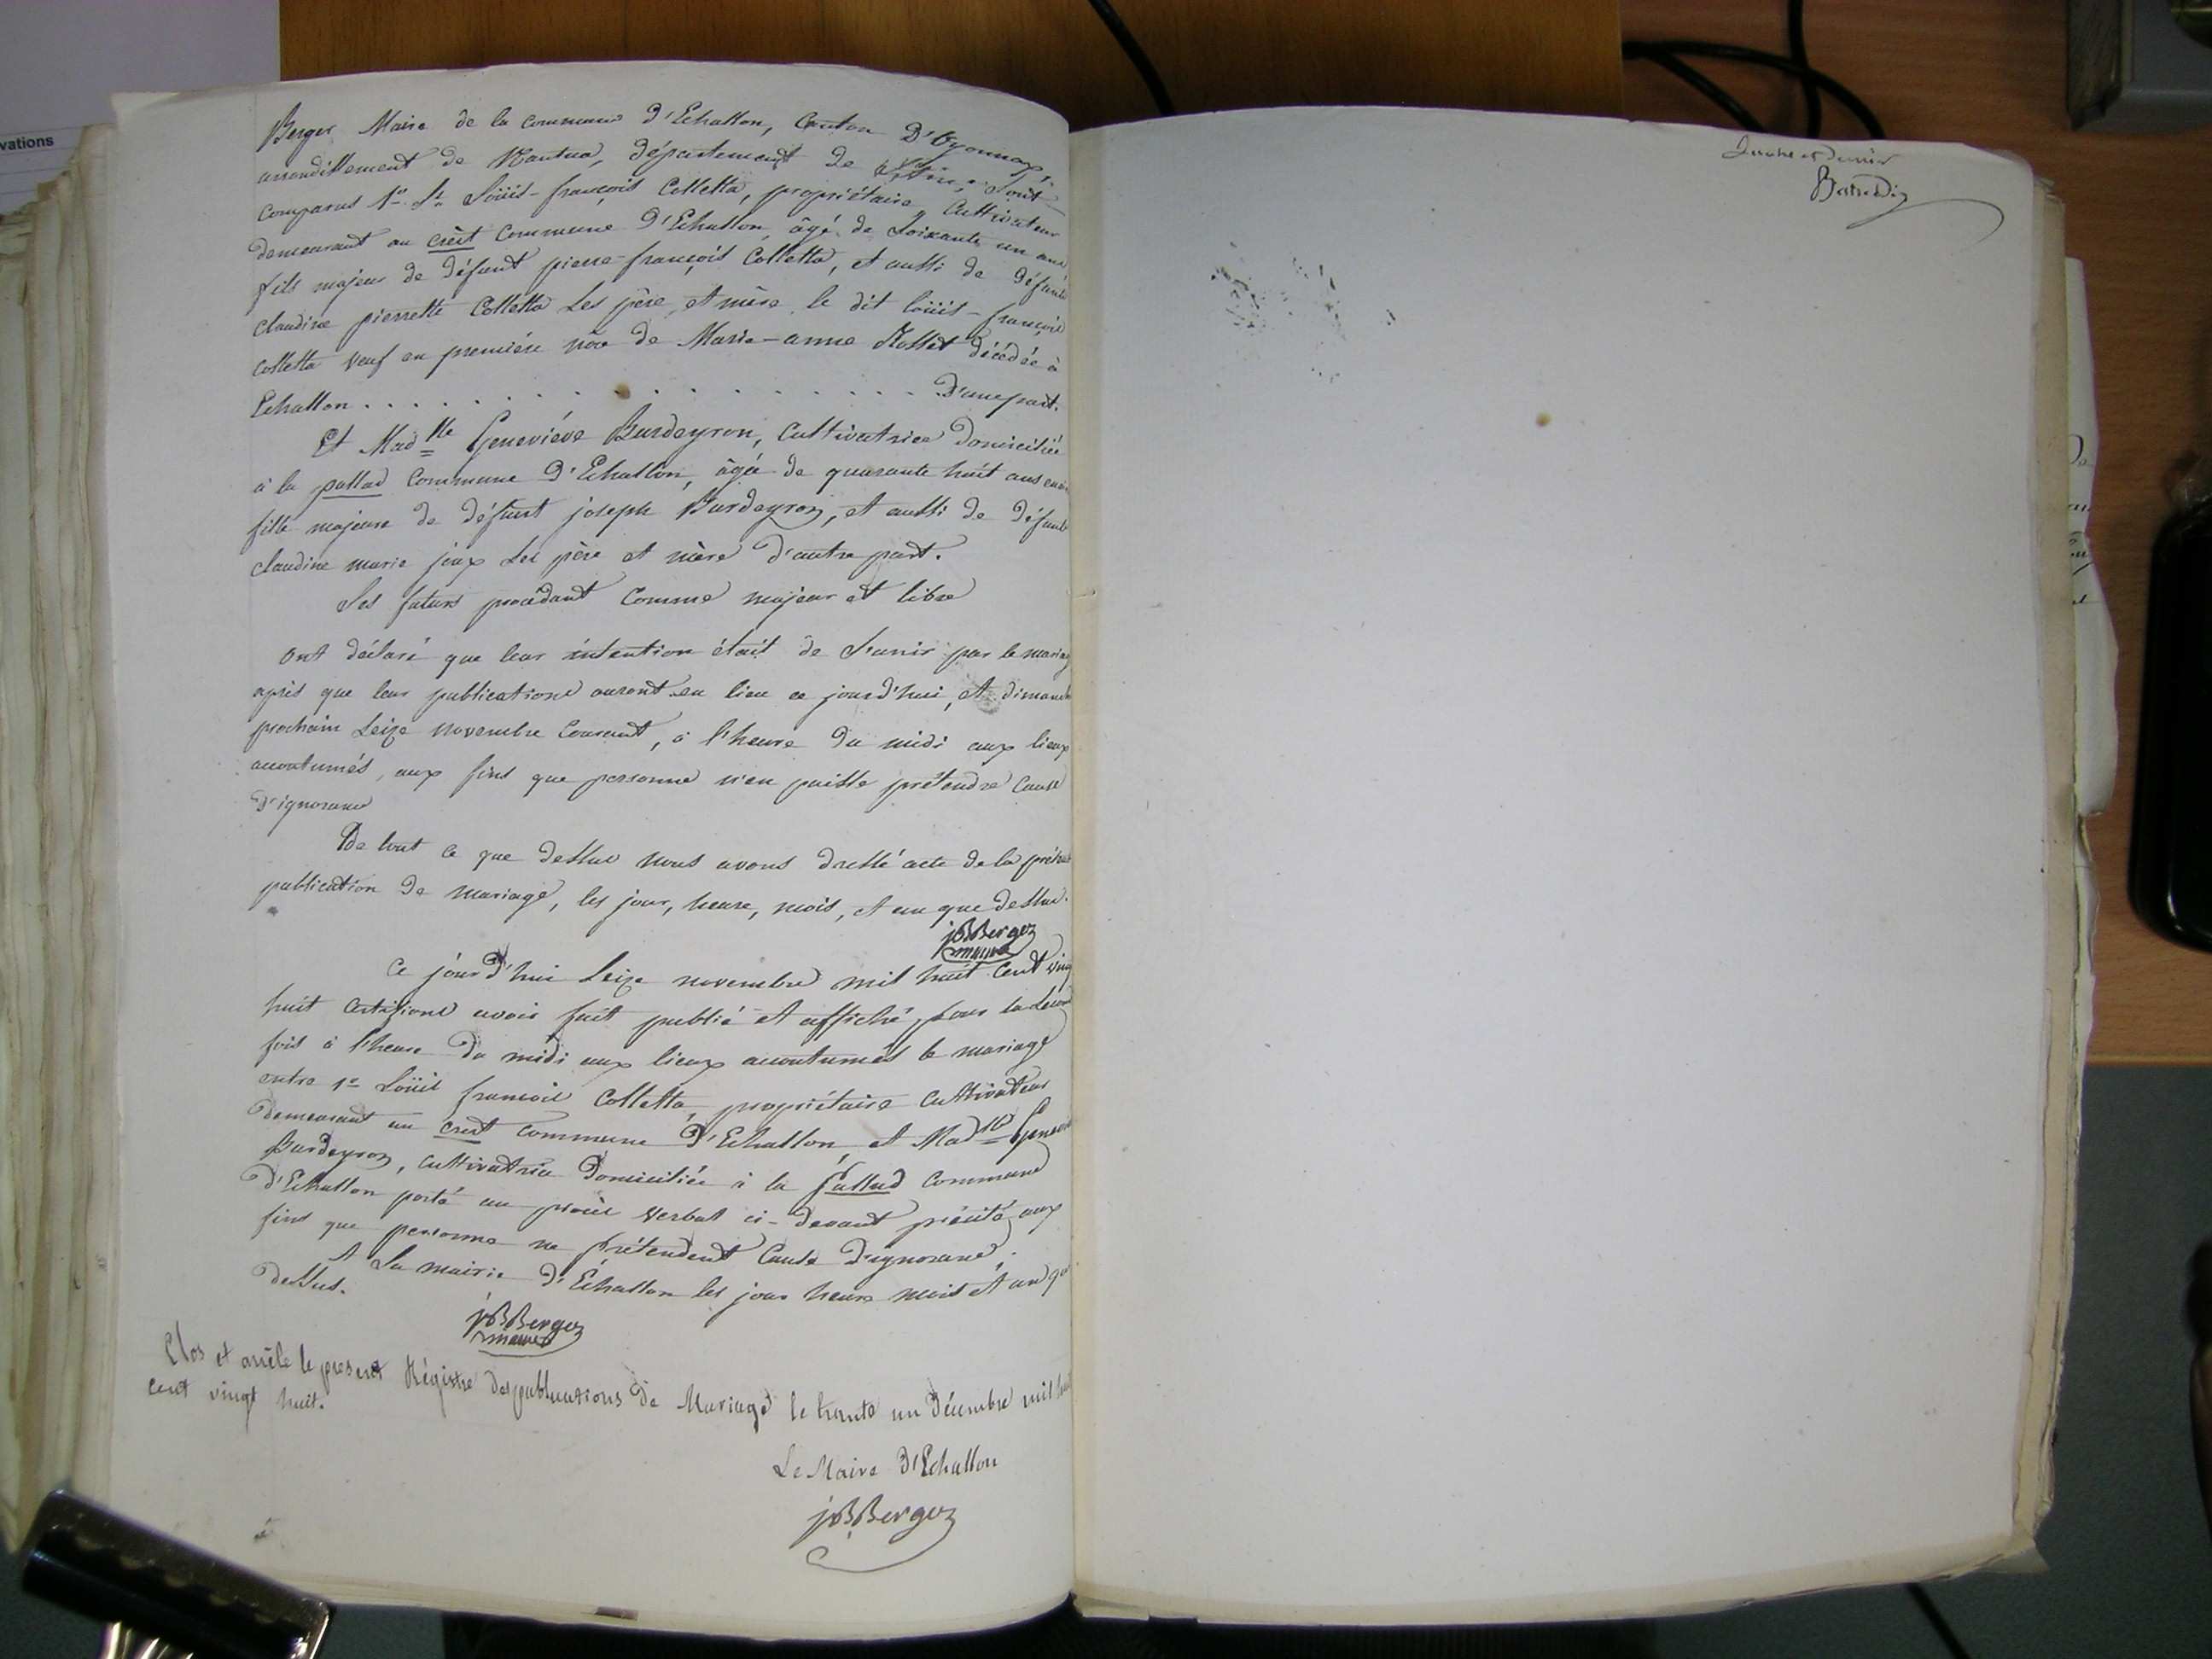 vations
Berger Maire de la commune d'Echallon, Canton D'Oyonnax,
arrondissement de Nantua, département de l'Ain; Sont
comparus 1º Sr Loüis-françois Colletta, propriétaire, Cultivateur
demeurant au crêt Commune D'Echallon, âgé de Soixante un ans
fils majeur de défunt pierre-françois Colletta, et aussi de défunte
claudine pierrette Colletta Ses père et mère, le dit loüis-françois
Colletta veuf en première nôce de Marie-anne Rosset décédée à
Echallon . . . . . . . . . . . . . . . . D'une part.
Et Madlle Geneviève Burdeyron, Cultivatrice domiciliée
à la pallud Commune D'Echallon, âgée de quarante huit ans
fille majeure de défunt joseph Burdeyron, et aussi de défunte
claudine marie joux Ses père et mère d'autre part.
Les futurs procédant Comme majeur et libre
ont déclaré que leur intention était de S'unir par le mariage
après que leur publications auront eu lieu ce jourd'hui, et dimanche
prochain Seize novembre Courant, à l'heure du midi aux lieux
accoutumés, aux fins que personne n'en puisse prétendre Cause
D'ignorance
De tout ce que dessus nous avons dressé acte de la présente
publication de mariage, les jour, heure, mois, et an que dessus.
jBBerger
maire
Ce jourd'hui Seize novembre mil huit Cent vingt
huit Certifions avoir fait publié et affiché, pour la Seconde
fois à l'heure du midi aux lieux accoutumés le mariage
entre 1º Loüis françois Colletta, propriétaire Cultivateur
demeurant au crêt commune D'Echallon, et Madlle Geneviève
Burdeyron, cultivatrice domiciliée à la Pallud Commune
d'Echallon porté au procès verbal ci-devant précité, aux
fins que personne ne prétendent Cause d'ignorance.
A La mairie d'Échallon les jour heure mois et an que
dessus.
jBBerger
maire
Clos et arrêté le present Régistre des publications de Mariage le trante un Décembre mil huit
cent vingt huit.
Le Maire D'Echallon
jBBerger